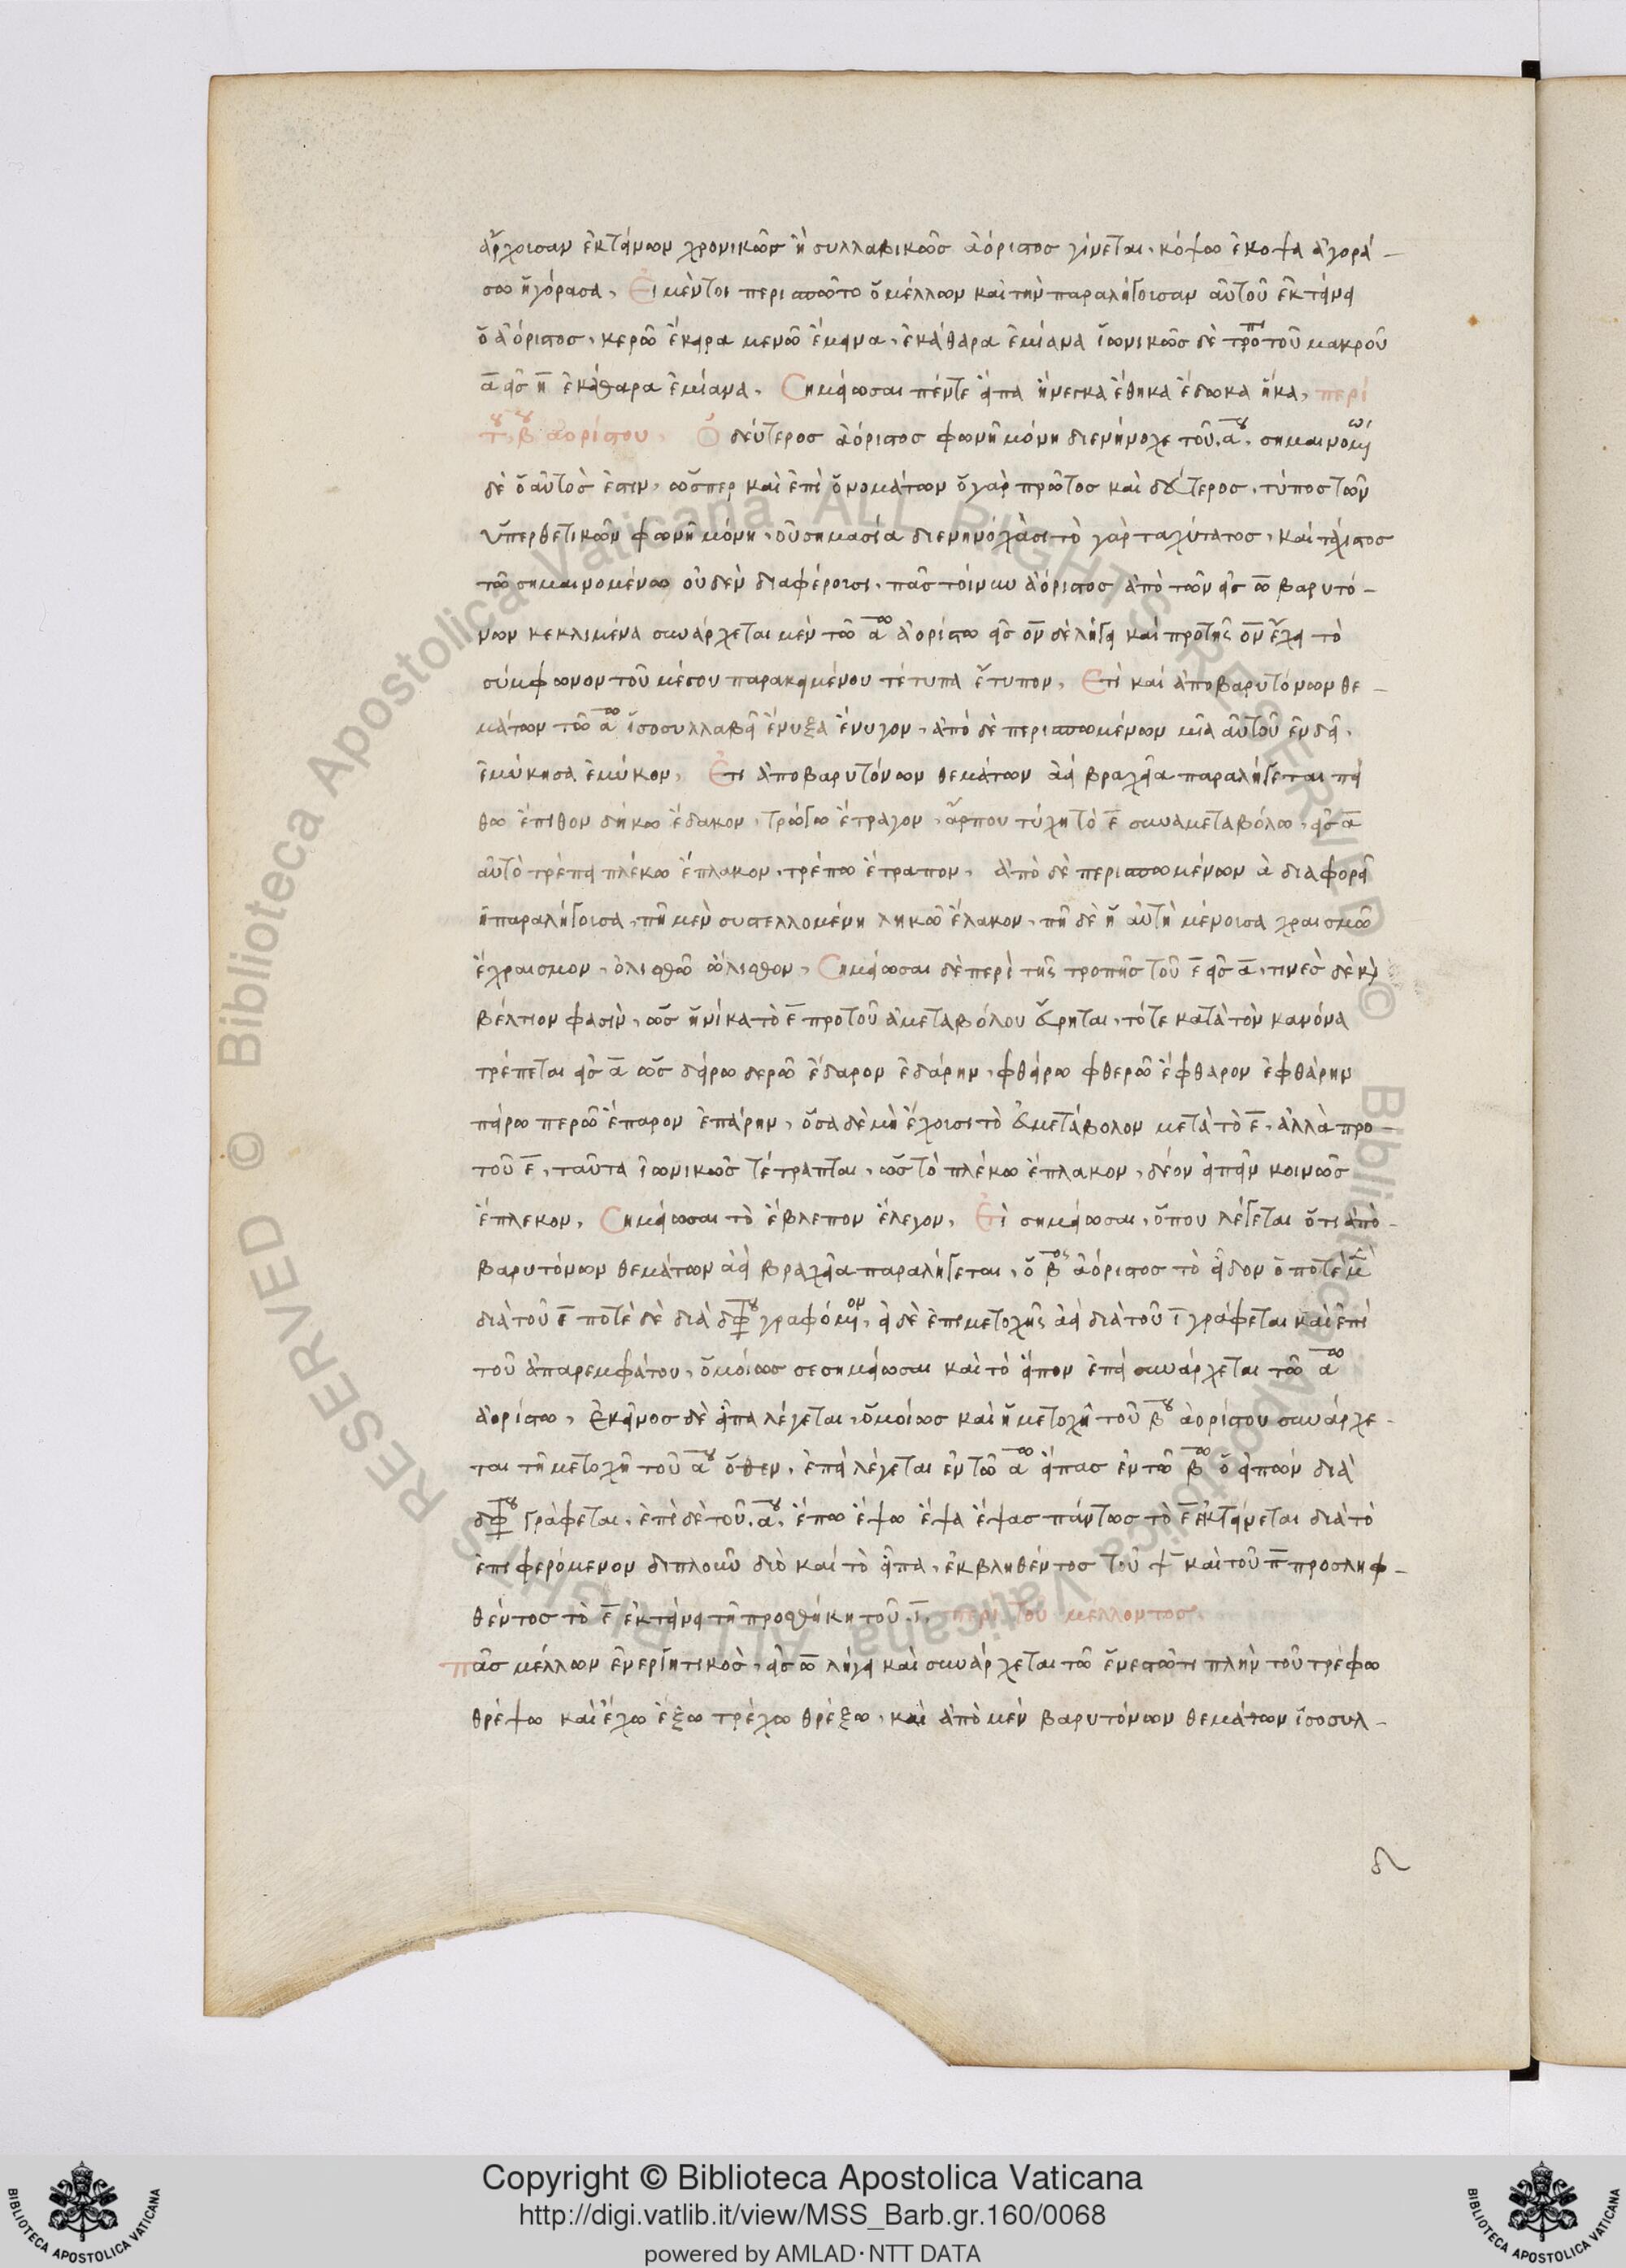 ἄρχουσαν ἐκτείνων χρονικῶς ἢ συλλαβικῶς ἀόριστος γίνεται, κόψω ἔκοψα ἀγορά-
σω ἠγόρασα, Εἰ μέντοι περισπῶτο ὁ μέλλων καὶ τὴν παραλήγουσαν αὐτοῦ ἐκτείνει
ὁ ἀόριστος, κερῶ ἔκειρα μενῶ ἔμεινα, ἐκάθαρα ἐμίανα ἰωνικῶς δὲ τροπῇ τοῦ μακροῦ
α εἰς η ἐκάθαρα ἐμίανα, Σημείωσαι πέντε εἶπα ἤνεγκα ἔθηκα ἔδωκα ἧκα, περὶ
τοῦ β ἀορίστου, Ὁ δεύτερος ἀόριστος φωνῇ μόνῃ διενήνοχε τοῦ αου, σημαινομένῳ
δὲ ὁ αὐτὸς ἐστιν, ὥσπερ καὶ ἐπὶ ὀνομάτων ὁ γὰρ πρῶτος καὶ δεύτερος, τύπος τῶν
ὑπερθετικῶν φωνῇ μόνῃ, οὐ σημασία διενηνόχασι τὸ γὰρ ταχύτατος, καὶ τάχιστος
τῶ σημαινομένω οὐδὲν διαφέρουσι, πᾶς τοίνυν ἀόριστος ἀπὸ τῶν εἰς ω βαρυτό-
νων κεκλιμένα συνάρχεται μὲν τῶ αω ἀορίστω εἰς ον δὲ λήγει καὶ πρὸ τῆς ον ἔχει τὸ
σύμφωνον τοῦ μέσου παρακειμένου τέτυπα ἔτυπον, Ἔτι καὶ ἀπὸ βαρυτόνων θε-
μάτων τῶ αω ἰσοσυλλαβεῖ ἔνυξα ἔνυγον, ἀπὸ δὲ περισπωμένων μιᾶ αὐτοῦ ἐνδεῖ,
ἐμύκησα ἔμυκον, Ἔτι ἀπὸ βαρυτόνων θεμάτων ἀεὶ βραχεῖα παραλήγεται πεί
θω ἔπιθον δήκω ἔδακον, τρώγω ἔτραγον, ἄρπου τύχῃ τὸ ε συναμεταβόλω, εἰς α
αὐτὸ τρέπει πλέκω ἔπλακον, τρέπω ἔτραπον, ἀπὸ δὲ περισπωμένων ἀδιαφορεῖ
ἡ παραλήγουσα, πῆ μὲν συστελλομένη ληκῶ ἔλακον, πῆ δὲ ἡ αὐτὴ μένουσα χραισμῶ
ἔχραισμον, ὀλισθῶ ὤλισθον, Σημείωσαι δὲ περὶ τῆς τροπῆς τοῦ ε εἰς α, τινὲς δὲ καὶ
βέλτιον φασὶν, ὡς ἡνίκα τὸ ε πρὸ τοῦ ἀμεταβόλου εὕρηται, τότε κατὰ τὸν κανόνα
τρέπεται εἰς α ὡς δείρω δερῶ ἔδαρον ἐδάρην, φθείρω φθερῶ ἔφθαρον ἐφθάρην
πείρω περῶ ἔπαρον ἐπάρην, ὅσα δὲ μὴ ἔχουσι τὸ ἀμετάβολον μετὰ τὸ ε, ἀλλὰ προ-
τοῦ ε, ταῦτα ἰωνικῶς τέτραπται, ὡς τὸ πλέκω ἔπλακον, δέον εἰπεῖν κοινῶς
ἔπλεκον, Σημείωσαι τὸ ἔβλεπον ἔλεγον, Ἔτι σημείωσαι, ὅπου λέγεται ὅτι ἀπὸ-
βαρυτόνων θεμάτων ἀεὶ βραχεῖα παραλήγεται, ὁ βος ἀόριστος τὸ εἶδον ὁ ποτὲ μὲν
διὰ τοῦ ε ποτὲ δὲ διὰ διφθόγγου γραφόμενον, εἰ δὲ ἐπὶ μετοχῆς ἀεὶ διὰ τοῦ ι γράφεται καὶ ἐπὶ
τοῦ ἀπαρεμφάτου, ὁμοίως σεσημείωσαι καὶ τὸ εἶπον ἐπεὶ συνάρχεται τῶ αω
ἀορίστω, Ἐκεῖνος δὲ εἶπα λέγεται, ὁμοίως καὶ ἡ μετοχὴ τοῦ βου ἀορίστου συνάρχε-
ται τῆ μετοχῆ τοῦ αου ὅθεν, ἐπεὶ λέγεται ἐν τῶ αω εἴπας ἐν τῶ βω ὁ εἰπὼν διὰ
διφθόγγου γράφεται, ἐπὶ δὲ τοῦ αου, ἔπω ἔψω ἔψα ἔψας πάντως τὸ ε ἐκτείνεται διὰ τὸ
ἐπιφερόμενον διπλοῦν διὸ καὶ τὸ εἶπα, ἐκβληθέντος τοῦ ψ καὶ τοῦ π προσληφ-
θέντος τὸ ε ἐκτείνει τῆ προσθήκη τοῦ ι, περὶ τοῦ μέλλοντος,
πᾶς μέλλων ἐνεργητικὸς, εἰς ω λήγει καὶ συνάρχεται τῶ ἐνεστῶτι πλὴν τοῦ τρέφω
θρέψω καὶ ἔχω ἕξω τρέχω θρέξω, καὶ ἀπὸ μὲν βαρυτόνων θεμάτων ἰσοσυλ-
Copyright © Biblioteca Apostolica Vaticana
http://digi.vatlib.it/view/MSS_Barb.gr.160/0068
powered by AMLAD·NTT DATA